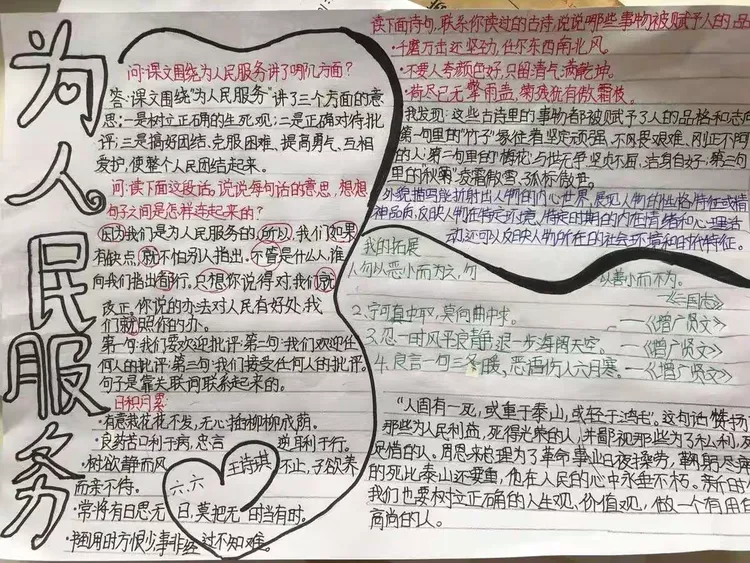 为人民服务
问:课文围绕为人民服务讲了哪几方面?
答:课文围绕“为人民服务”讲了三个方面的意
思:一是树立正确的生死观;二是正确对待批
评;三是搞好团结、克服困难、提高勇气、互相
爱护,使整个人民团结起来。
问:读下面这段话,说说每句话的意思,想想
句子之间是怎样连起来的?
因为我们是为人民服务的,所以,我们如果
有缺点,就不怕别人指出,不管是什么人,谁
向我们指出都行。只想你说得对,我们就
改正,你说的办法对人民有好处,我
们就照你的办。
第一句:我们要欢迎批评;第二句:我们欢迎任
何人的批评;第三句:我们接受任何人的批评。
句子是靠关联词联系起来的。
日积月累
·有意栽花花不发,无心插柳柳成荫。
·良药苦口利于病,忠言逆耳利于行。
·树欲静而风不止,子欲养
而亲不待。
·常将有日思无日,莫把无时当有时。
·书到用时方恨少,事非经过不知难。
六.六 王诗琪
读下面诗句,联系你读过的古诗,说说哪些事物被赋予人的品
·千磨万击还坚劲,任尔东西南北风。
·不要人夸颜色好,只留清气满乾坤。
·荷尽已无擎雨盖,菊残犹有傲霜枝。
我发现:这些古诗里的事物都被赋予了人的品格和志向
第一句里的“竹子”象征者坚定顽强,不风畏艰难、刚正不阿
的人;第二句里的“梅花”与世无争,坚贞不屈、洁身自好;第三句
里的秋菊“凌霜傲雪、孤标傲世。
外貌描写能折射出人物的内心世界,展现人物的性格特征或精
神品质,反映人物在特定环境、特定时期的内在情绪和心理活
动还可以反映人物所在的社会环境和时代特征。
我的拓展
1.勿以恶小而为之,勿以善小而不为。
——《三国志》
2、宁可直中取,莫向曲中求。——《增广贤文》
3.忍一时风平浪静,退一步海阔天空。——《增广贤文》
4.良言一句三冬暖、恶语伤人六月寒。——《增广贤文》
“人固有一死,或重于泰山,或轻于鸿毛”。这句话赞扬
那些为人民利益,死得光荣的人,并鄙视那些为了私利,
足惜的人。周恩来总理为了革命事业日夜操劳,鞠躬尽瘁
的死比泰山还要重,他在人民的心中永垂不朽。新时
我们也要树立正确的人生观,价值观,做一个有用
高尚的人。